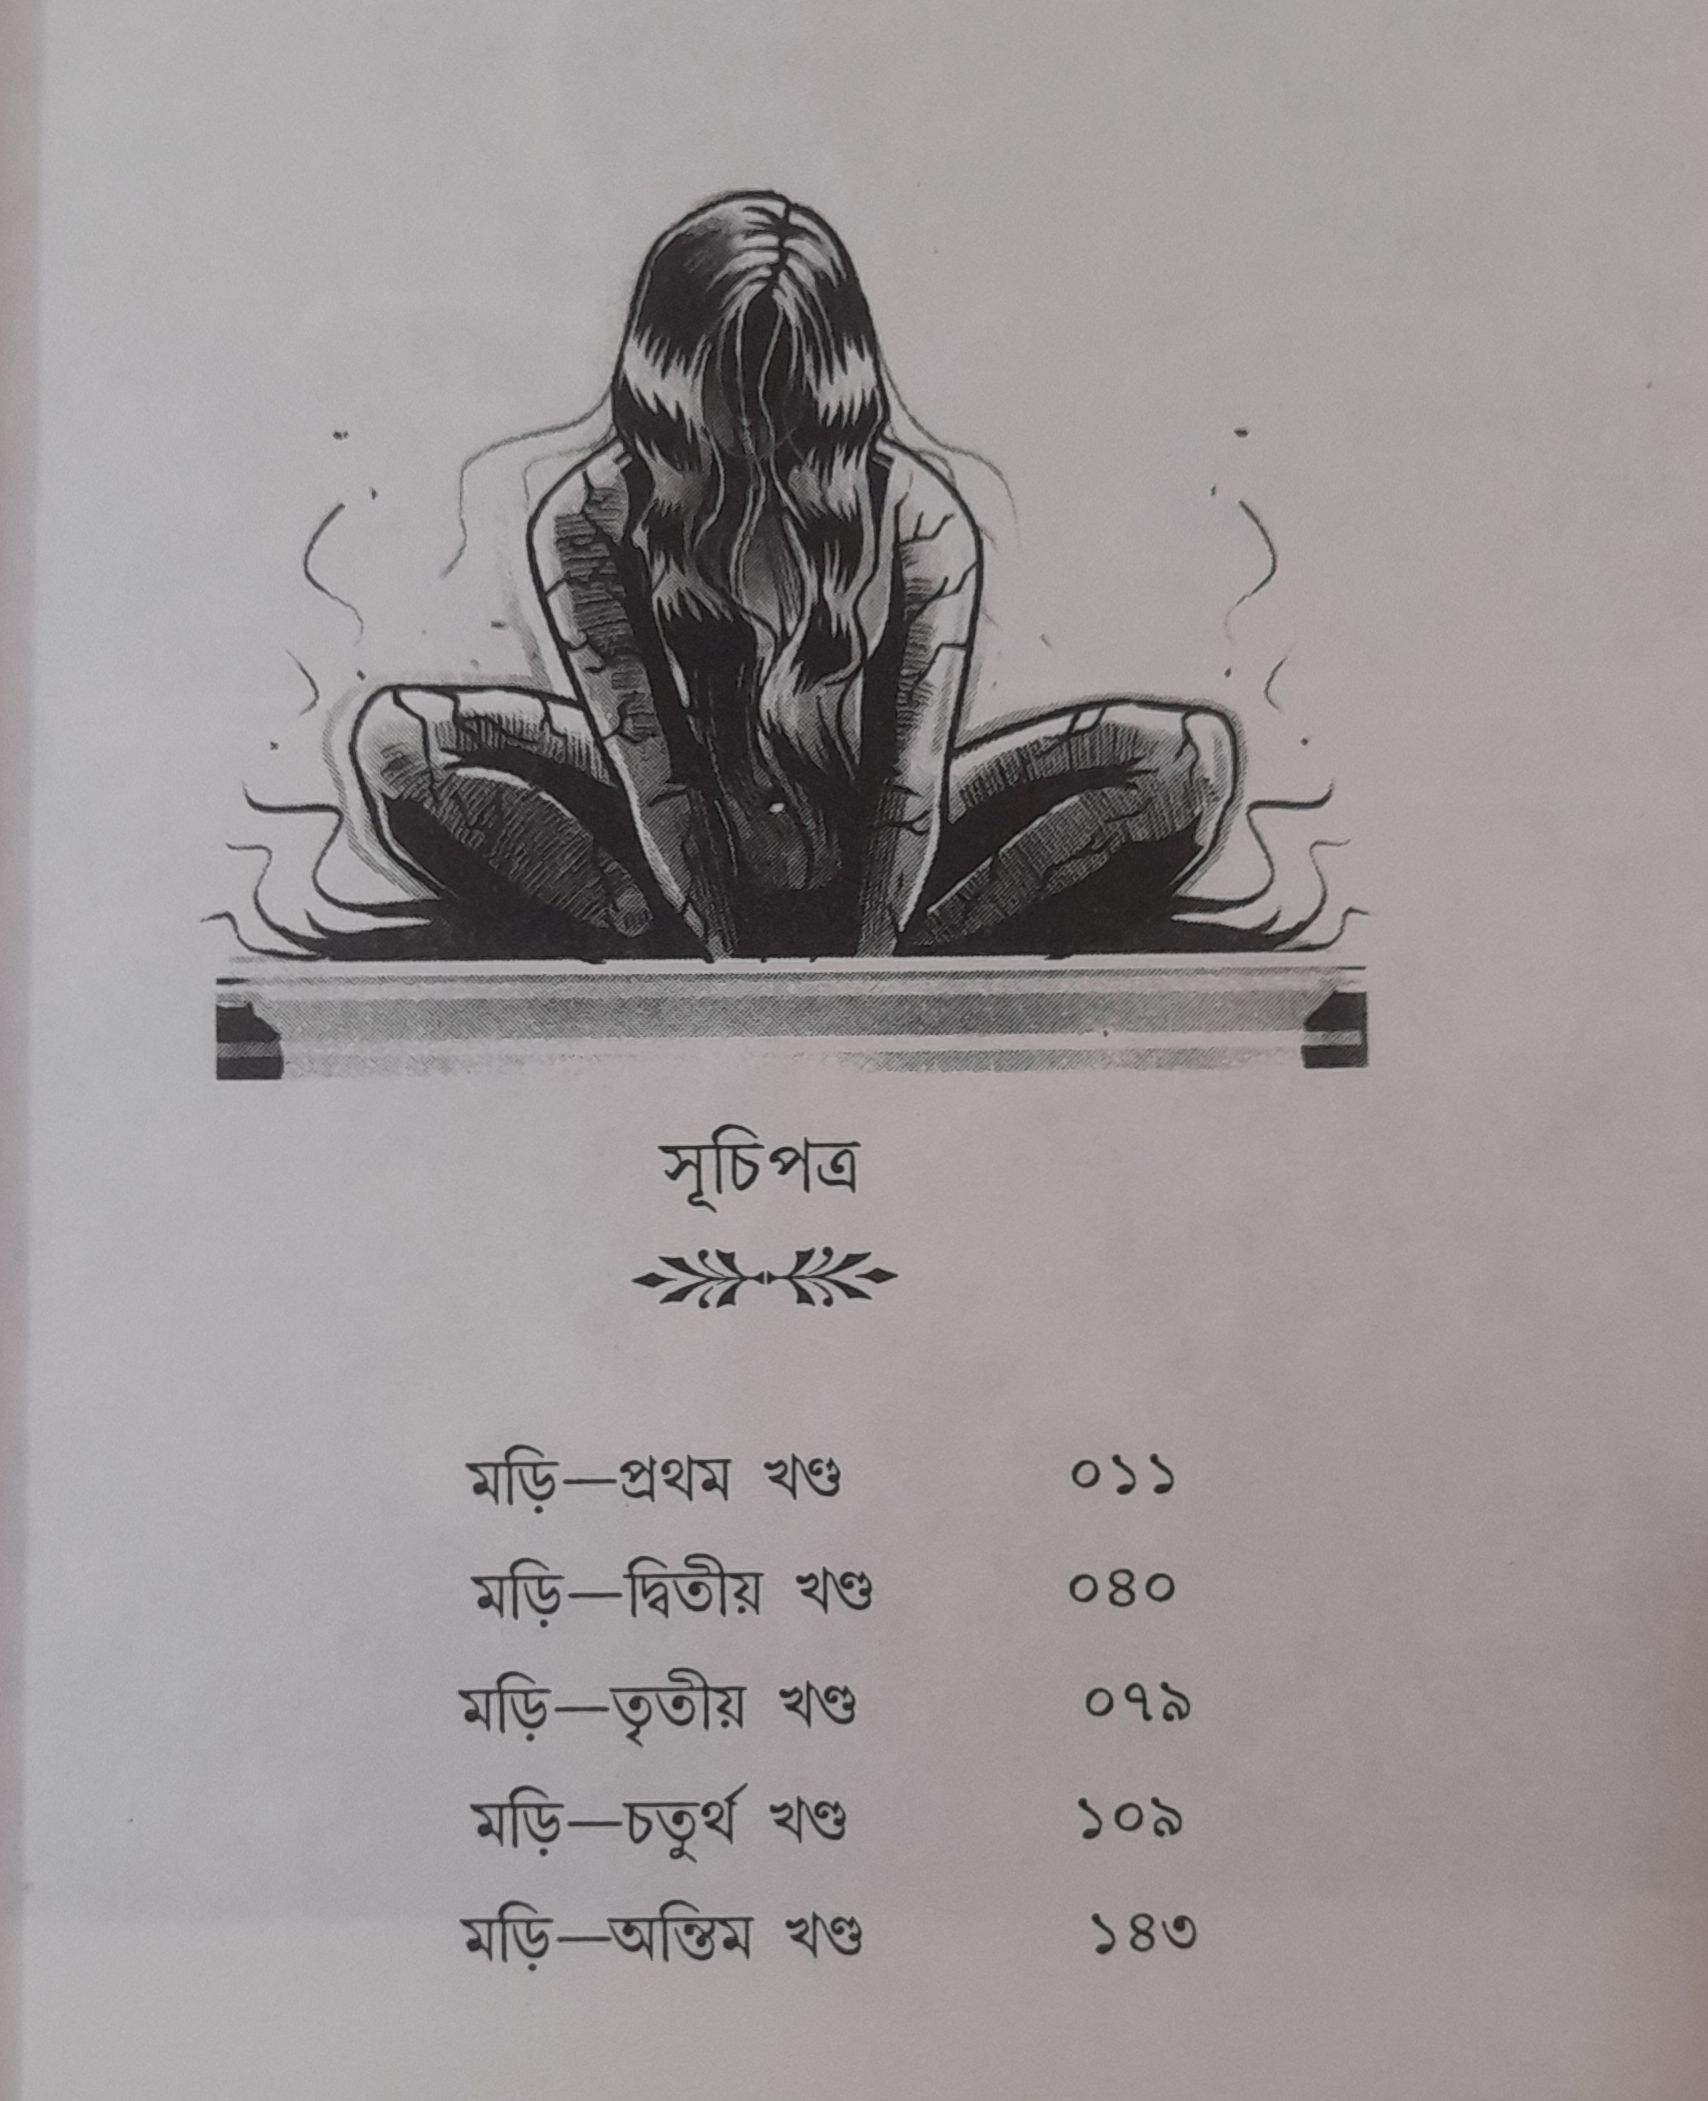 সূচিপত্র
মড়ি—প্রথম খণ্ড ০১১
মড়ি—দ্বিতীয় খণ্ড ০৪০
মড়ি—তৃতীয় খণ্ড ০৭৯
মড়ি—চতুর্থ খণ্ড ১০৯
মড়ি—অন্তিম খণ্ড ১৪৩